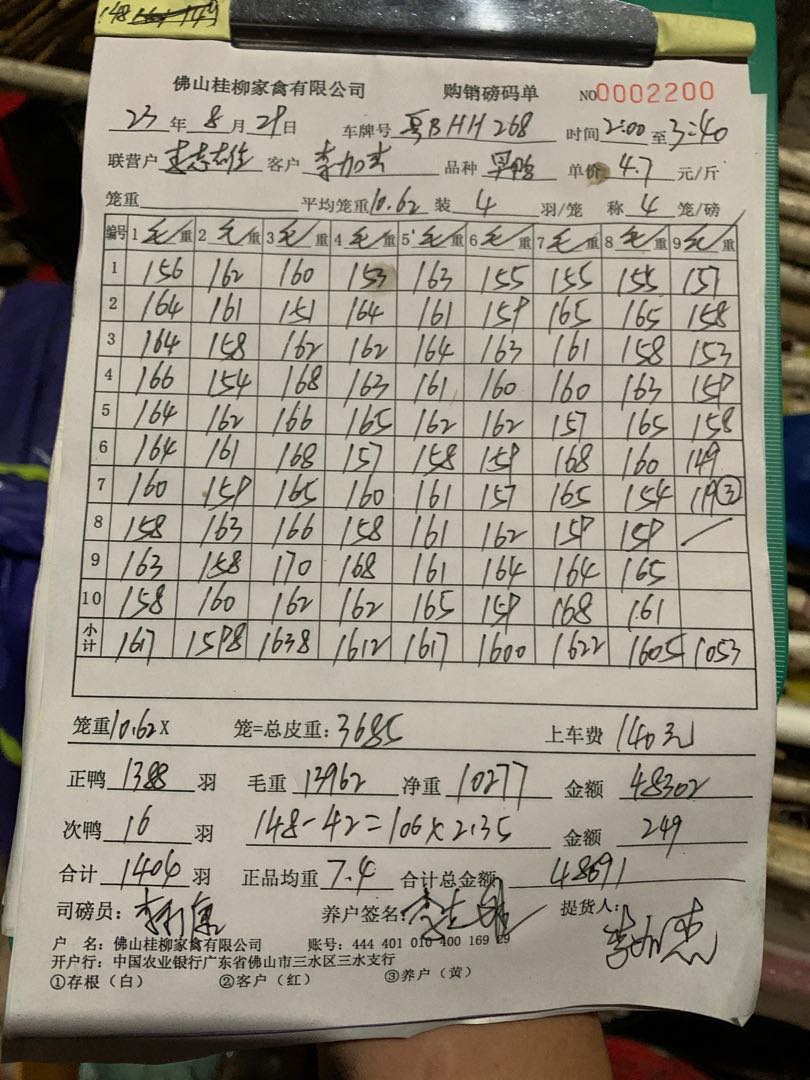 148
佛山桂柳家禽有限公司 购销磅码单 NO 0002200
23年8月29日 车牌号 粤BHH268 时间 2:00 至 3:40
联营户 客户 李加杰 品种 单价 4.7 元/斤
笼重 平均笼重 10.62 装 4 羽/笼 称 4 笼/磅
编号 1 毛重 2 毛重 3 毛重 4 毛重 5 毛重 6 毛重 7 毛重 8 毛重 9 毛重
1 156 162 160 153 163 155 155 155 157
2 164 161 151 164 161 159 165 165 158
3 164 158 162 162 164 163 161 158 153
4 166 154 168 163 161 160 160 163 159
5 164 162 166 165 162 162 157 165 158
6 164 161 168 157 158 159 168 160 149
7 160 159 165 160 161 157 165 154 119③
8 158 163 166 158 161 162 159 159 /
9 163 158 170 168 161 164 164 165
10 158 160 162 162 165 159 168 161
小计 1617 1598 1638 1612 1617 1600 1622 1605 1053
笼重 10.62 X 笼=总皮重：3685 上车费 140元
正鸭 1388 羽 毛重 13962 净重 10277 金额 48302
次鸭 16 羽 148-42=106×2.35 金额 249
合计 1404 羽 正品均重 7.4 合计总金额 48691
司磅员： 养户签名： 提货人：李加杰
户 名：佛山桂柳家禽有限公司 账号：444 401 010 400 169 29
开户行：中国农业银行广东省佛山市三水区三水支行
①存根（白） ②客户（红） ③养户（黄）